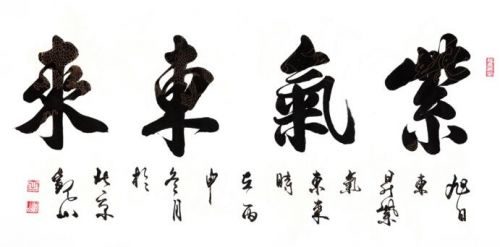 紫氣東來
旭日
東
昇紫
氣
東來
時
在丙
申
冬月
於
北京